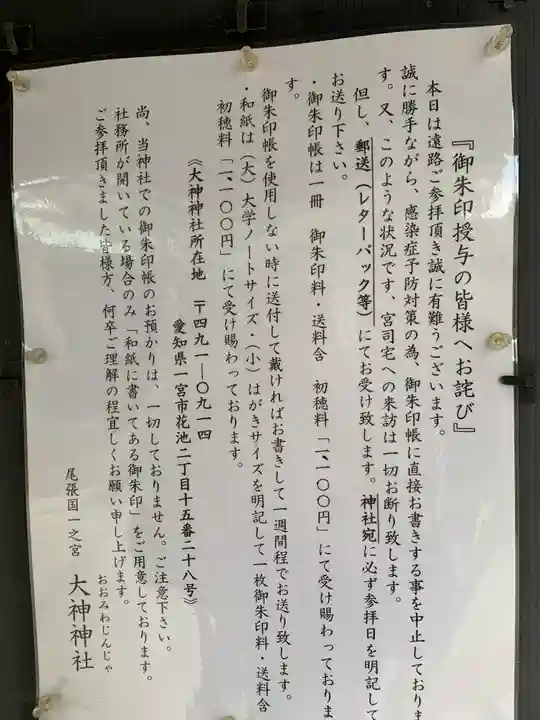 『御朱印授与の皆様へお詫び』
本日は遠路ご参拝頂き誠に有難うございます。
誠に勝手ながら、感染症予防対策の為、御朱印帳に直接お書きする事を中止しておりま
す。又、このような状況です、宮司宅への来訪は一切お断り致します。
但し、郵送(レターパック等)にてお受け致します。神社宛に必ず参拝日を明記して
お送り下さい。
・御朱印帳は一冊 御朱印料・送料含 初穂料「一、一〇〇円」にて受け賜わっておりま
す。
御朱印帳を使用しない時に送付して戴ければお書きして一週間程でお送り致します。
・和紙は(大)大学ノートサイズ・(小)はがきサイズを明記して一枚御朱印料・送料含
初穂料「一、一〇〇円」にて受け賜わっております。
《大神神社所在地 〒四九一―〇九一四
愛知県一宮市花池二丁目十五番二十八号》
尚、当神社での御朱印帳のお預かりは、一切しておりません。ご注意下さい。
社務所が開いている場合のみ「和紙に書いてある御朱印」をご用意しております。
ご参拝頂きました皆様方、何卒ご理解の程宜しくお願い申し上げます。
尾張国一之宮 大神神社
おおみわじんじゃ